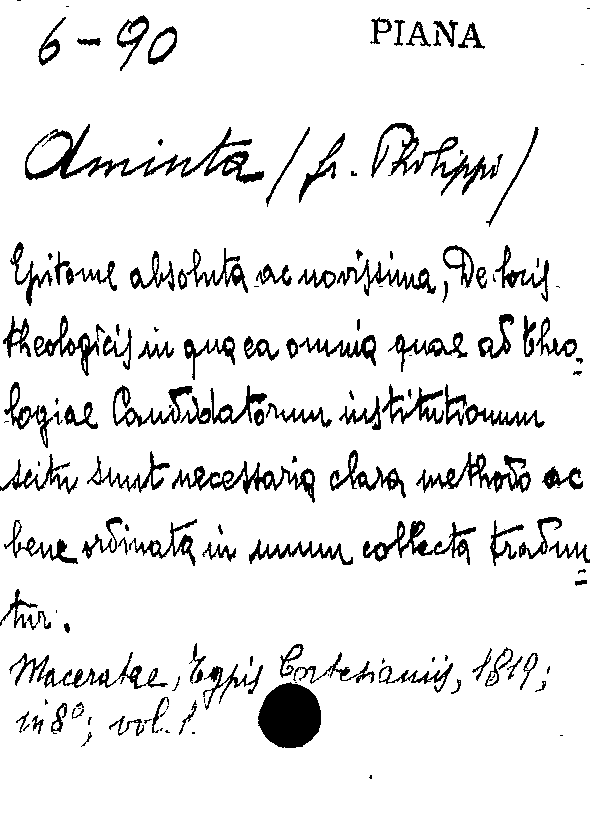 6-90 PIANA
Aminta / fr. Philippi /
Epitome absoluta ac novissima, De locis
theologicis in qua ea omnia quae ad theo=
logiae Candidatorum institutionem
scitu sunt necessaria clara methodo ac
bene ordinata in unum collecta tradun=
tur.
Maceratae, Typis Cortesianis, 1819;
in 8º; vol. 1.